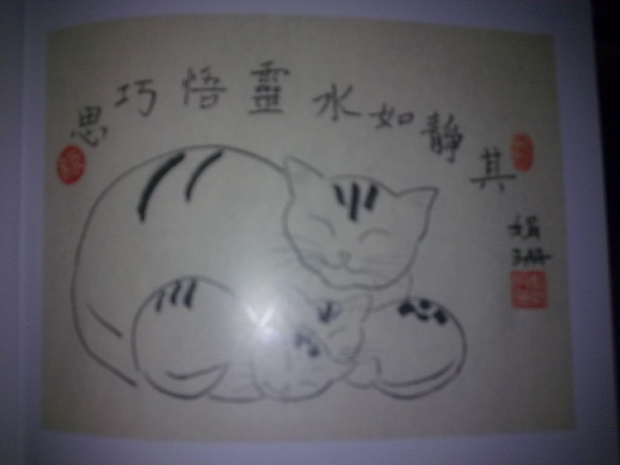 其靜如水靈悟巧思
娟珊